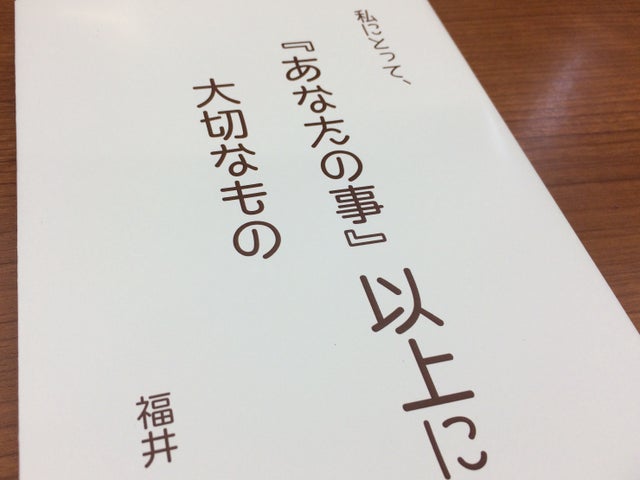 私にとって、
『あなたの事』以上に
大切なもの
福井